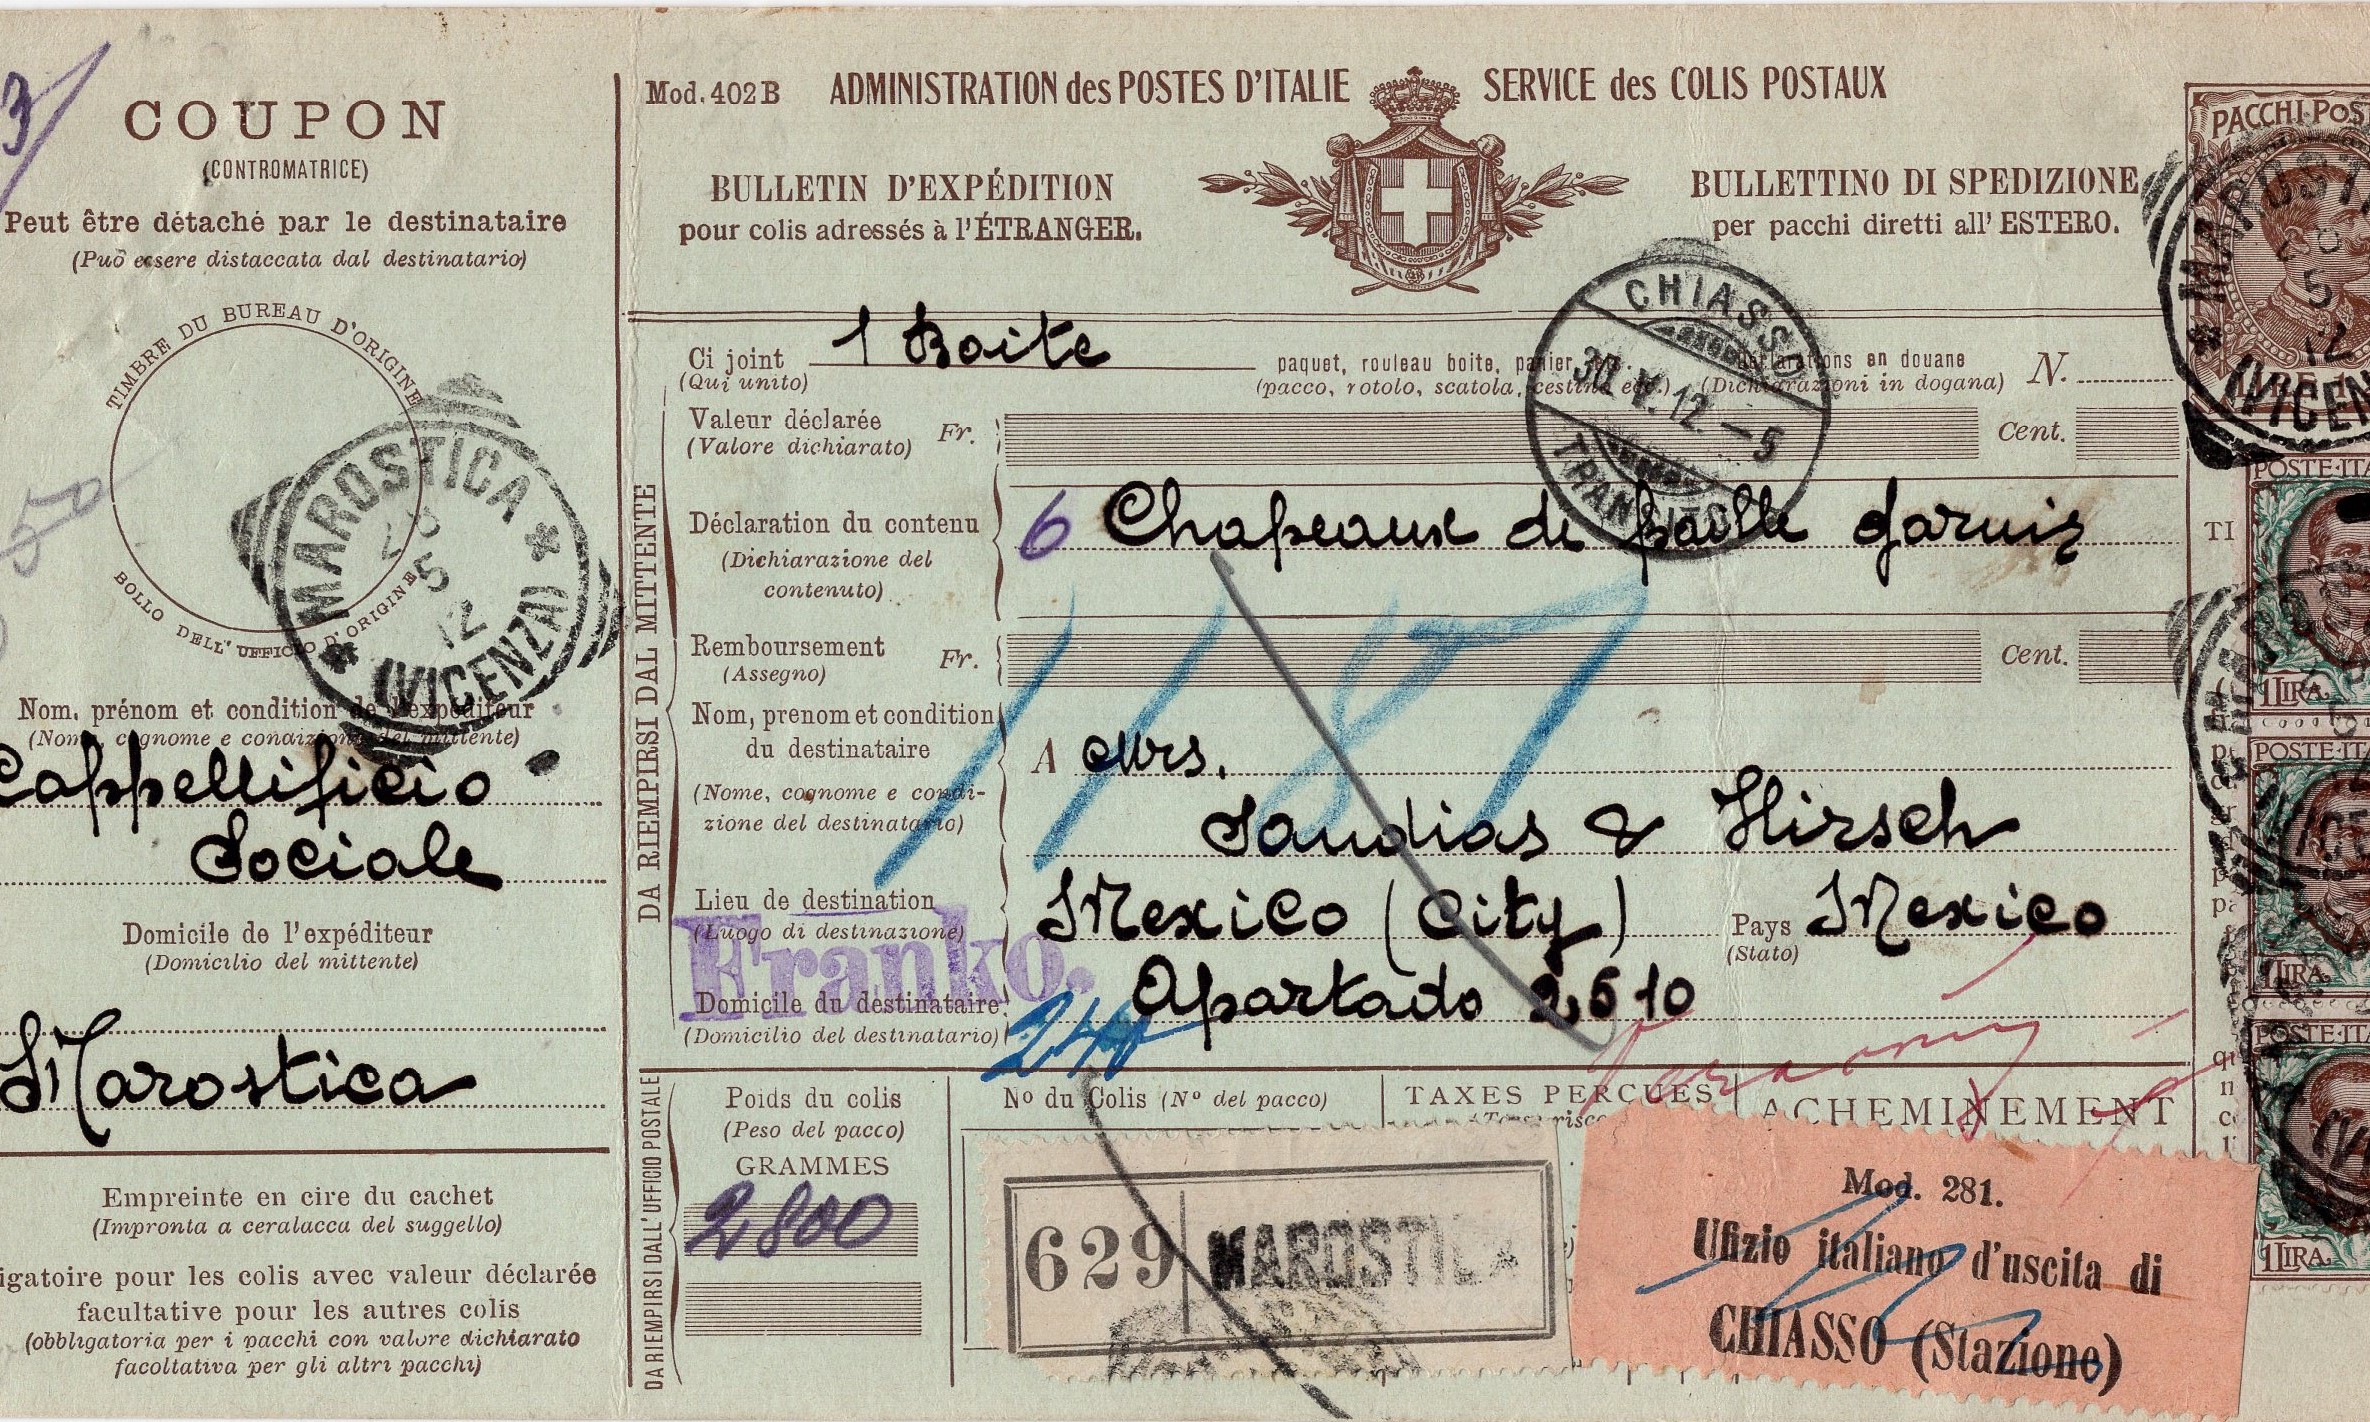 3
COUPON
(CONTROMATRICE)
Peut être détaché par le destinataire
(Può essere distaccata dal destinatario)
TIMBRE DU BUREAU D'ORIGINE
BOLLO DELL'UFFICIO D'ORIGINE
MAROSTICA
5
12
(VICENZA)
50
Nom, prénom et condition de l'expéditeur
(Nome, cognome e condizione del mittente)
Cappellificio
Sociale
Domicile de l'expéditeur
(Domicilio del mittente)
Marostica
Empreinte en cire du cachet
(Impronta a ceralacca del suggello)
igatoire pour les colis avec valeur déclarée
facultative pour les autres colis
(obbligatoria per i pacchi con valore dichiarato
facoltativa per gli altri pacchi)
Mod. 402 B
ADMINISTRATION des POSTES D'ITALIE
SERVICE des COLIS POSTAUX
BULLETIN D'EXPÉDITION
pour colis adressés à l'ÉTRANGER.
BULLETTINO DI SPEDIZIONE
per pacchi diretti all' ESTERO.
DA RIEMPIRSI DAL MITTENTE
Ci joint 1 Boite paquet, rouleau boite, panier etc. Déclarations en douane N.
(Qui unito) (pacco, rotolo, scatola, cestino ecc.) (Dichiarazioni in dogana)
CHIASSO
30.V.12.-5
TRANSITO
Valeur déclarée Fr. Cent.
(Valore dichiarato)
Déclaration du contenu 6 Chapeaux de paille garnis
(Dichiarazione del
contenuto)
Remboursement Fr. Cent.
(Assegno)
1187
Nom, prenom et condition
du destinataire A Mrs.
(Nome, cognome e condi-
zione del destinatario) Saudias & Hirsch
Lieu de destination Mexico (City) Pays Mexico
(Luogo di destinazione) (Stato)
Franko.
Domicile du destinataire Apartado 2510
(Domicilio del destinatario)
DA RIEMPIRSI DALL'UFFICIO POSTALE
Poids du colis
(Peso del pacco)
GRAMMES
2800
No du Colis (No del pacco)
629 MAROSTICA
TAXES PERÇUES
ACHEMINEMENT
Mod. 281.
Ufizio italiano d'uscita di
CHIASSO (Stazione)
PACCHI POST
MAROSTI
5
12
(VICEN
TI
POSTE ITA
1 LIRA
POSTE ITA
1 LIRA
POSTE ITA
1 LIRA